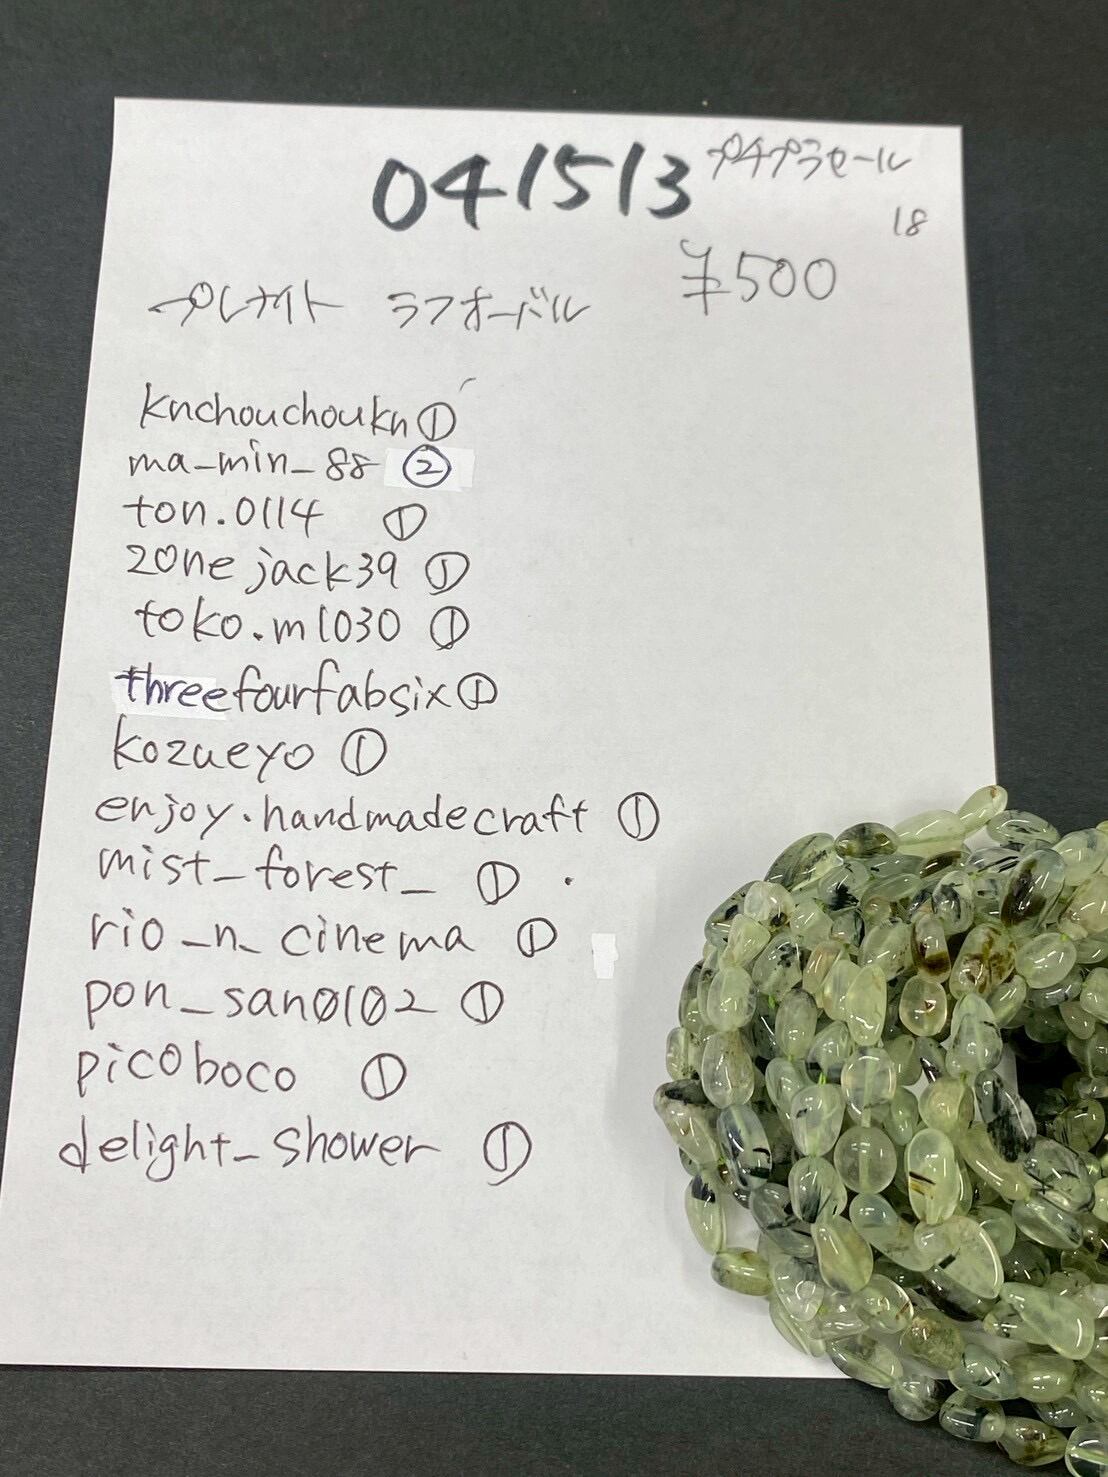 041513 プチプラセール
18
¥500
プレナイト ラフオーバル
knchouchoukn ①
ma_min_88 ②
ton.0114 ①
zonejack39 ①
toko.m1030 ①
threefourfabsix ①
kozueyo ①
enjoy.handmadecraft ①
mist_forest_ ①
rio_n_cinema ①
pon_san0102 ①
picoboco ①
delight_shower ①